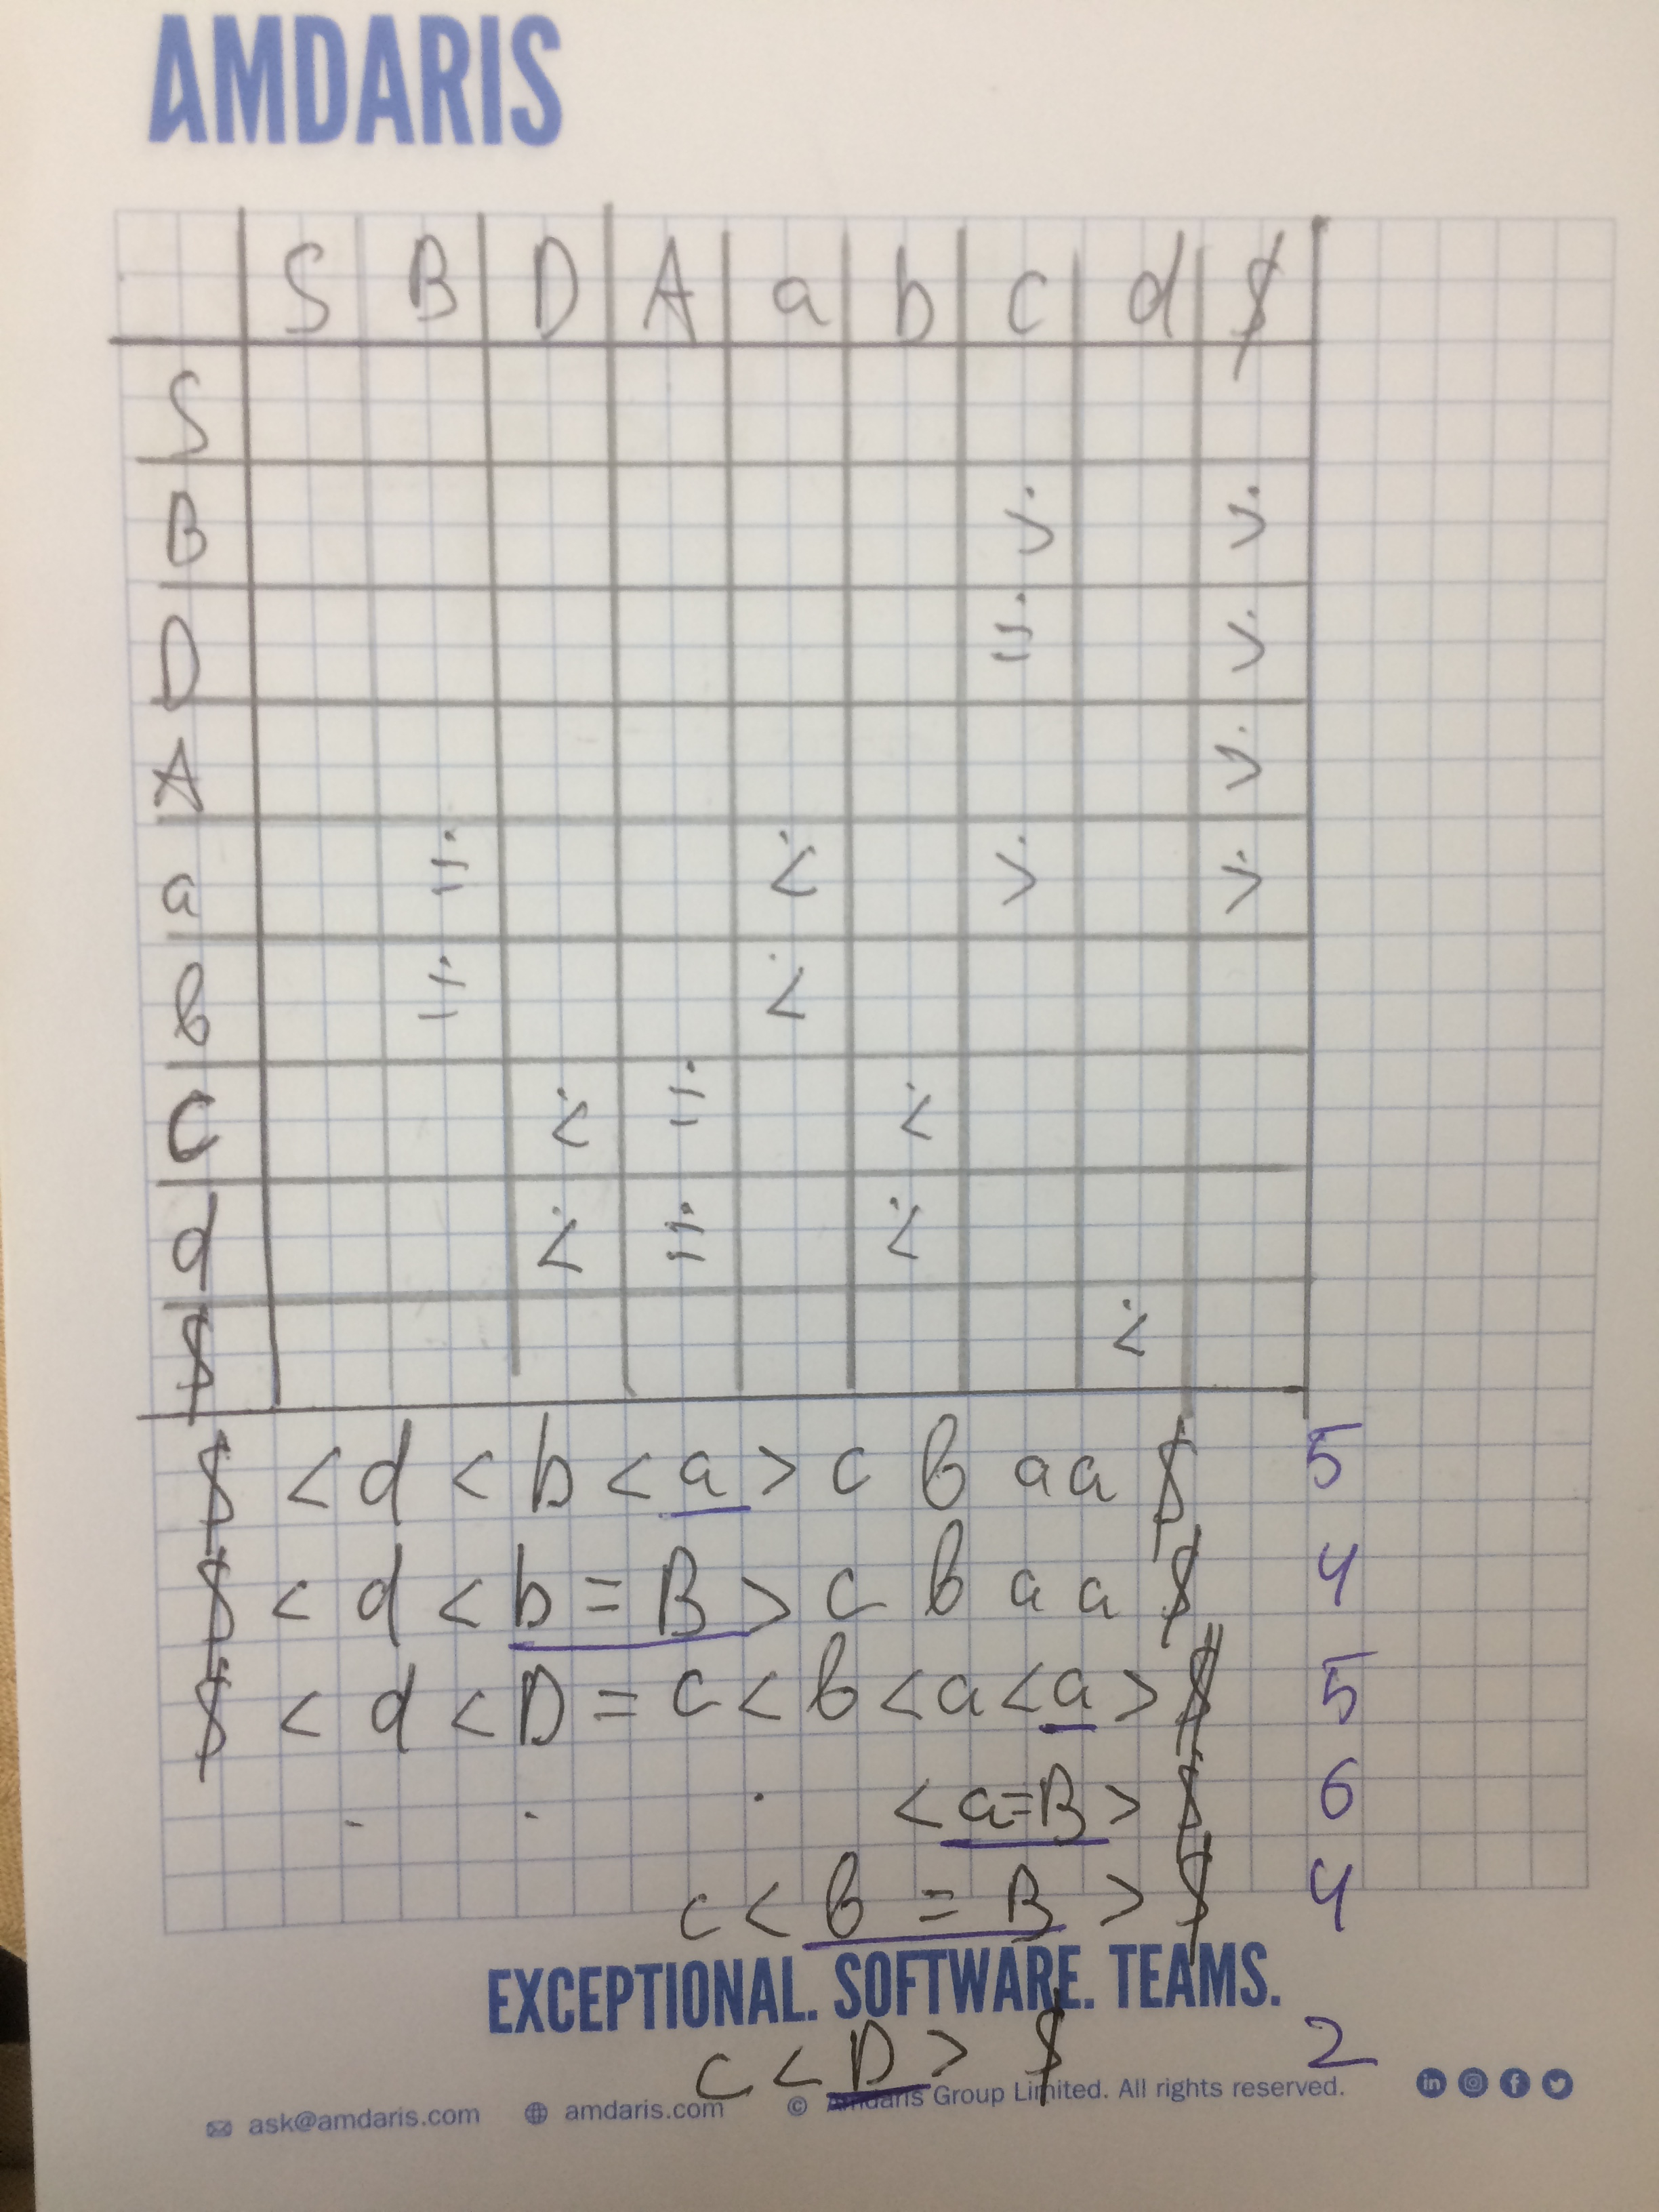 AMDARIS
S B D A a b c d $
S
B ⋗ ⋗
D ≐ ⋗
A ⋗
a ≐ ⋖ ⋗ ⋗
b ≐ ⋖
c ⋖ ≐ ⋖
d ⋖ ≐ ⋖
$ ⋖
$ < d < b < a > c b a a $ 5
$ < d < b = B > c b a a $ 4
$ < d < D = c < b < a < a > $ 5
. . . < a = B > $ 6
c < b = B > $ 4
EXCEPTIONAL. SOFTWARE. TEAMS.
c < D > $ 2
ask@amdaris.com amdaris.com © Amdaris Group Limited. All rights reserved.